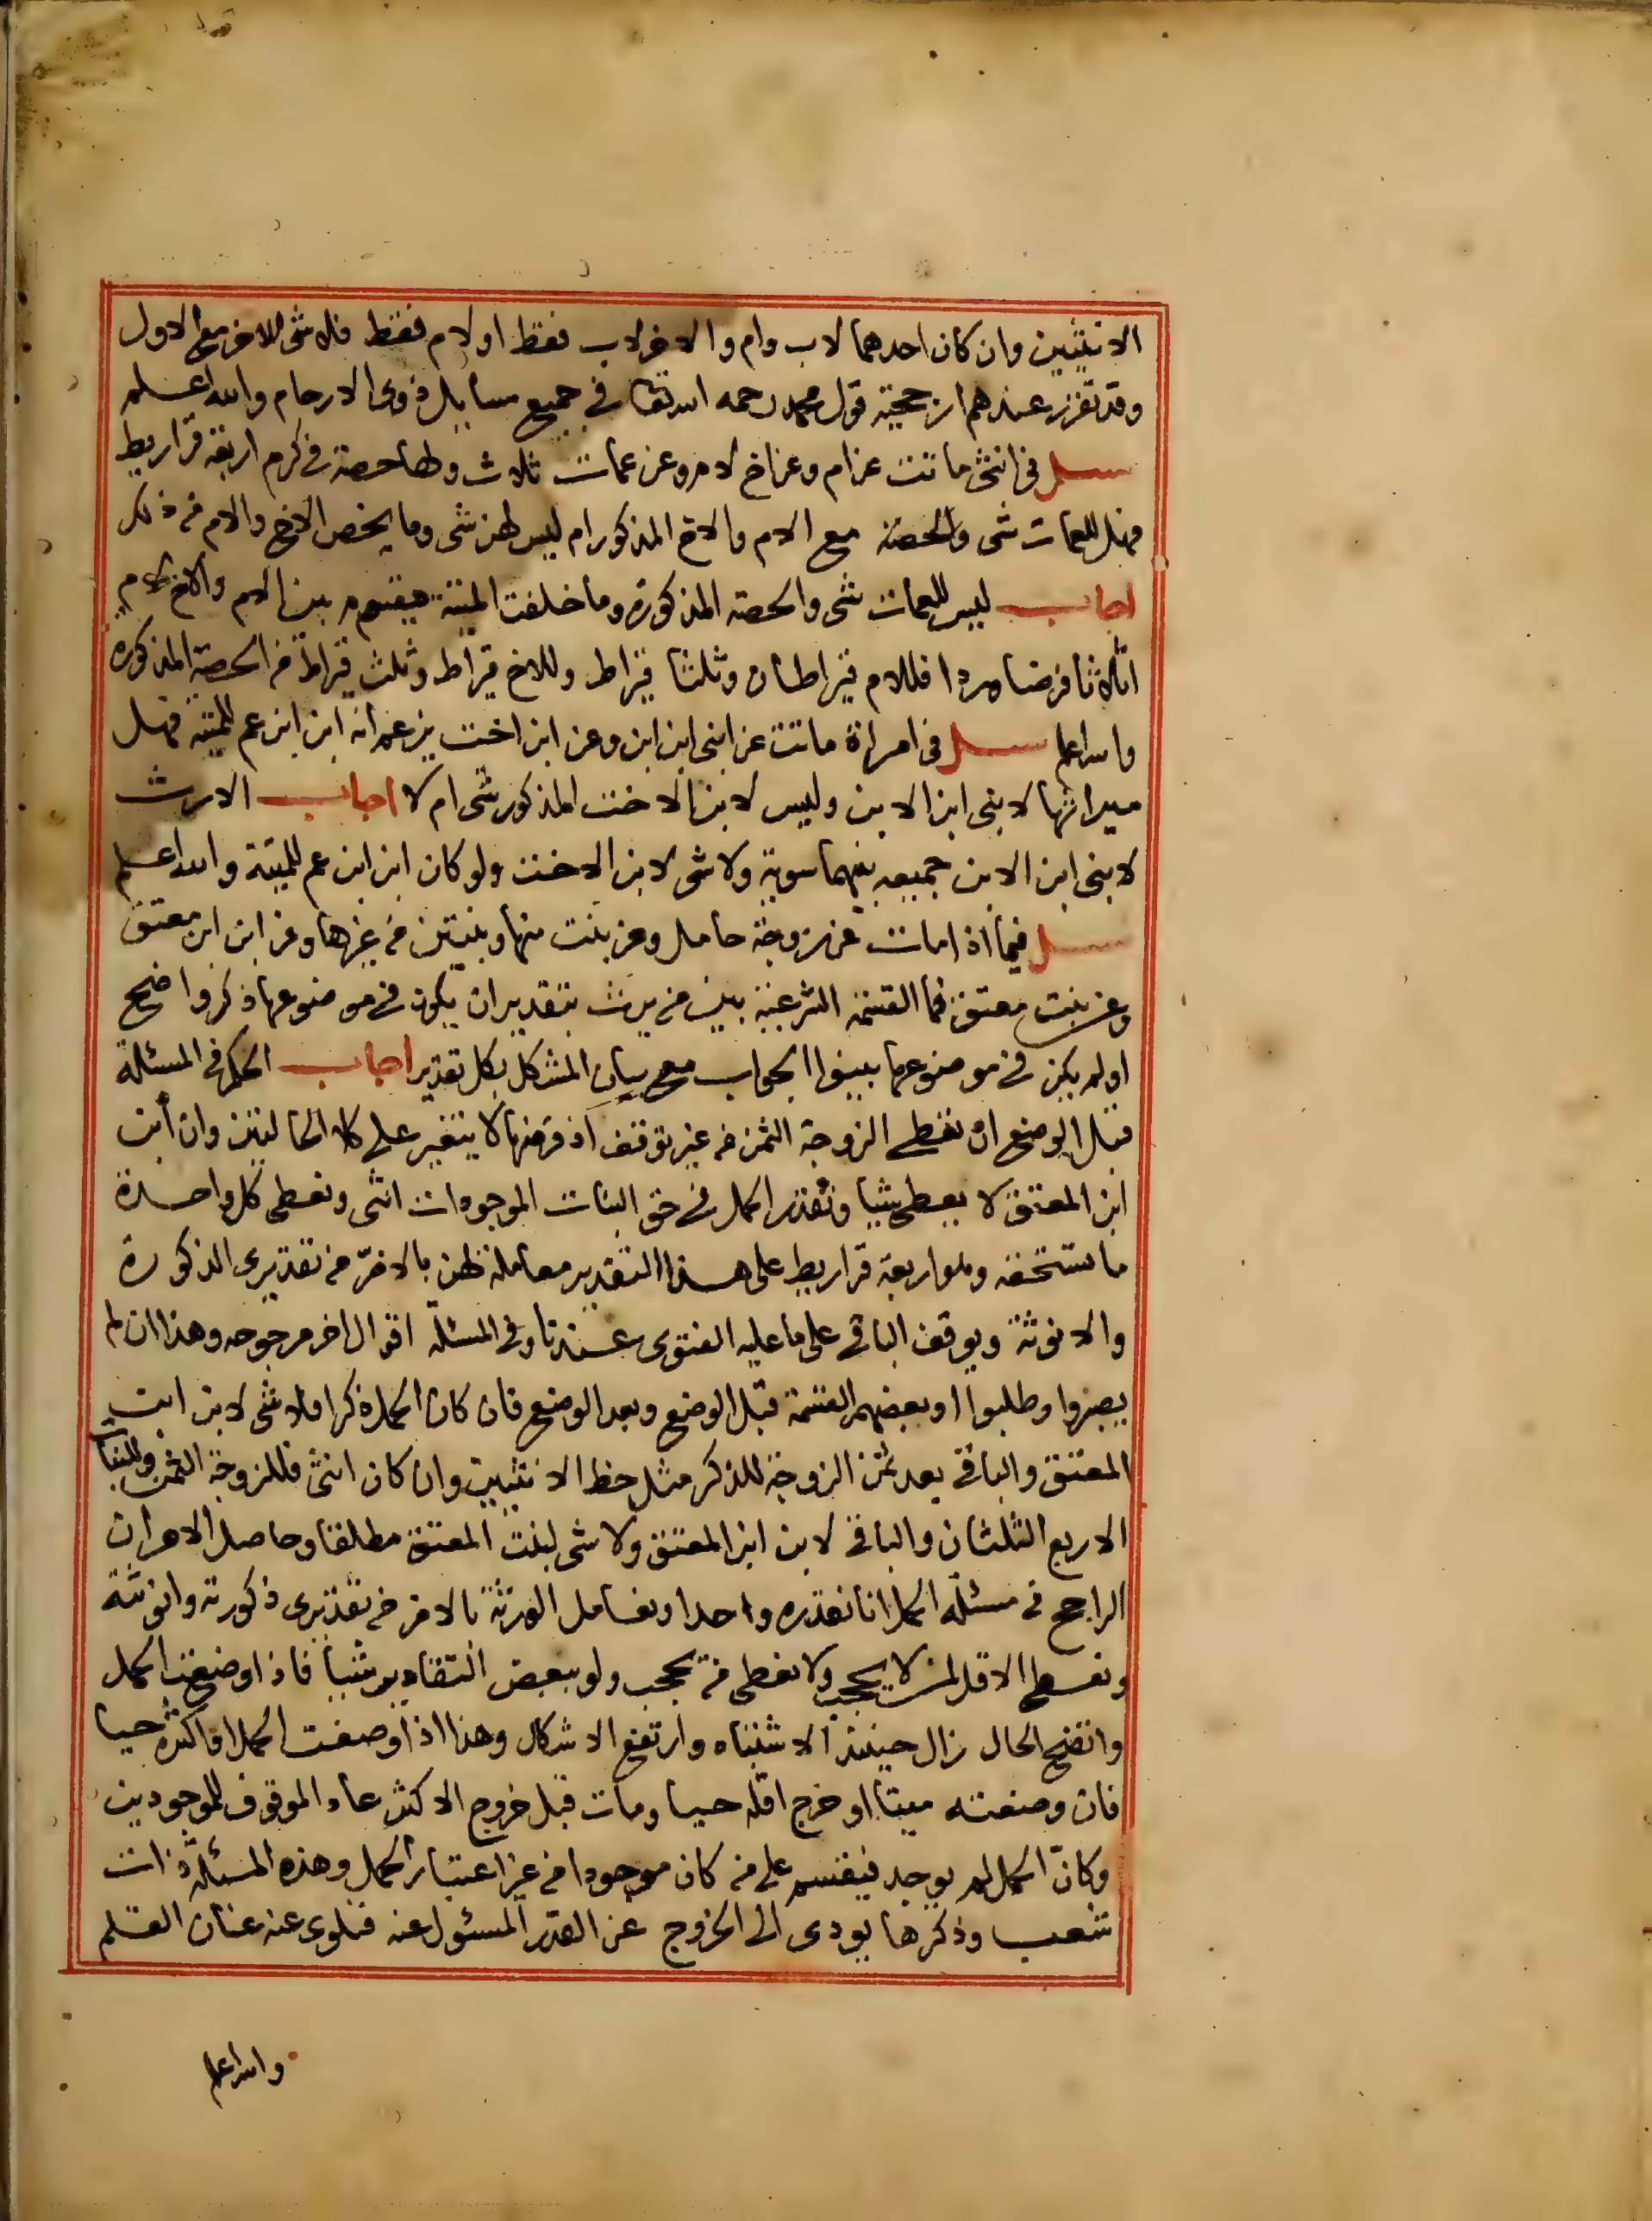 الانثيين وان كان احدهما لاب وام والاخر لاب فقط او لام فقط فلا شى للاخر مع الاول
وقد تقرر عندهم ارجحية قول محمد رحمه الله تعالى في جميع مسايل ذوى الارحام والله اعلم
سئل فى انثى ماتت عن ام وعن اخ لام وعن عمات ثلاث ولها حصة فى كرم اربعة قراريط
فهل للعمات شى والحصة مع الام والاخ المذكور ام ليس لهن شى وما يخص الاخ والام من ذلك
اجاب ليس للعمات شى والحصة المذكورة وما خلفت الميتة يقسم بين الام والاخ لام
اثلاثا فرضا وردا فللام قيراطان وثلثا قيراط وللاخ قيراط وثلث قيراط من الحصة المذكورة
والله اعلم سئل فى امراة ماتت عن ابنى ابن ابن وعن ابن اخت يزعم انه ابن ابن عم للميتة فهل
ميراثها لابنى ابن الابن وليس لابن الاخت المذكور شى ام لا اجاب الارث
لابنى ابن الابن جميعه بينهما سوية ولا شى لابن الاخت ولو كان ابن ابن عم للميتة والله اعلم
سئل فيما اذا مات عن زوجة حامل وعن بنت منها وبنتين من غيرها وعن ابن ابن معتق
وعن بنت معتق فما القسمة الشرعية بين من يرث بتقدير ان يكون فى موضوعها ذكر واضح
او لم يكن فى موضوعها بينوا الجواب مع بيان المشكل بكل تقدير اجاب الحكم فى المسئلة
قبل الوضع ان تعطى الزوجة الثمن من غير توقف اذ فرضها لا يتغير على كلا الحالتين وان ابن
ابن المعتق لا يعطى شيا ونقدر الحمل فى حق البنات الموجودات انثى وتعطى كل واحدة
ما تستحقه وهو اربعة قراريط على هذا التقدير معاملة لهن بالاضر من تقديرى الذكورة
والانوثة ويوقف الباقى على ما عليه الفتوى عندنا وفى المسئلة اقوال اخر مرجوحه وهذا ان لم
يصبروا وطلبوا او بعضهم القسمة قبل الوضع وبعد الوضع فان كان الحمل ذكرا فلا شى لابن ابن
المعتق والباقى بعد ثمن الزوجة للذكر مثل حظ الانثيين وان كان انثى فللزوجة الثمن وللبنات
الاربع الثلثان والباقى لابن ابن المعتق ولا شى لبنت المعتق مطلقا وحاصل الامر ان
الراجح فى مسئلة الحمل انا نقدره واحدا ونعامل الورثة بالاضر من تقديرى ذكورته وانوثته
ونعطى الاقل لمن لا يحجب ولا نعطى من يحجب ولو ببعض التقادير شيا فاذا وضعت الحمل
واتضح الحال زال حينئذ الاشتباه وارتفع الاشكال وهذا اذا وضعت الحمل او اكثره حيا
فان وضعته ميتا او خرج اقله حيا ومات قبل خروج الاكثر عاد الموقوف للموجودين
وكان الحمل لم يوجد فيقسم على من كان موجودا من غير اعتبار الحمل وهذه المسئلة ذات
شعب وذكرها يودى الى الخروج عن القدر المسئول عنه فنلوى عنه عنان القلم
والله اعلم